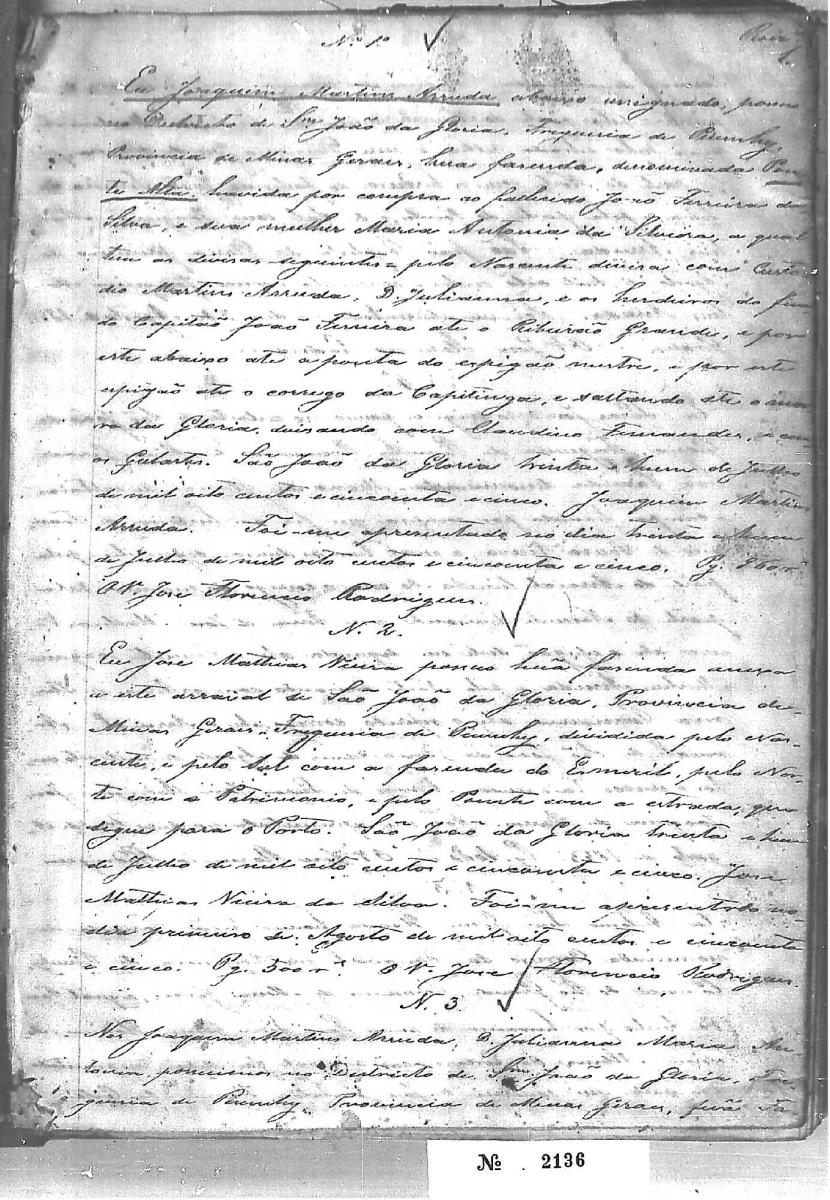 N. 1º
Eu Joaquim Martins Arruda abaixo asignado, possuo
no Destricto de Sm João da Gloria, Freguesia de Piumhy,
Provincia de Minas Geraes, huã fazenda, denominada Pon
te Alta, havida por compra ao fallecido João Ferreira da
Silva, e sua mulher Maria Antonia da Silveira, a qual
tem as divisas seguintes = pelo Nascente divisa com Custo
dio Martins Arruda, D. Julianna, e os herdeiros do fina
do Capitão João Ferreira até o Ribeirão Grande, e por
este abaixo até a ponta do espigão mestre, e por este
espigão até o corrego da Capitinga, e saltando até o mor
ro da Gloria, divisando com Claudino Fernandes, e com
os Gularts. São João da Gloria trinta e hum de Julho
de mil oito centos e cincoenta e cinco. Joaquim Martins
Arruda. Foi-me apresentado no dia trinta e hum
de Julho de mil oito centos e cincoenta e cinco. Pg.
O Vº José Florencio Rodrigues.
N. 2.
Eu José Mathias Vieira possuo huã fazenda anexa
a este arraial de São João da Gloria, Provincia de
Minas Geraes, Freguesia de Piumhy, dividida pelo Nas-
cente, e pelo Sul com a fazenda do Esmeril, pelo Nor-
te com o Patrimonio, e pelo Poente com a estrada, que
segue para o Porto. São João da Gloria trinta e hum
de Julho de mil oito centos e cincoenta e cinco. José
Mathias Vieira da Silva. Foi-me apresentado no
dia primeiro de Agosto de mil oito centos e cincoenta
e cinco. Pg. 500 rs. O Vº José Florencio Rodrigues.
N. 3.
Nos Joaquim Martins Arruda, D. Julianna Maria An-
tonia, possuimos no Districto de Sm João da Gloria, Fre
guesia de Piumhy, Provincia de Minas Geraes, huã fa
Nº 2136